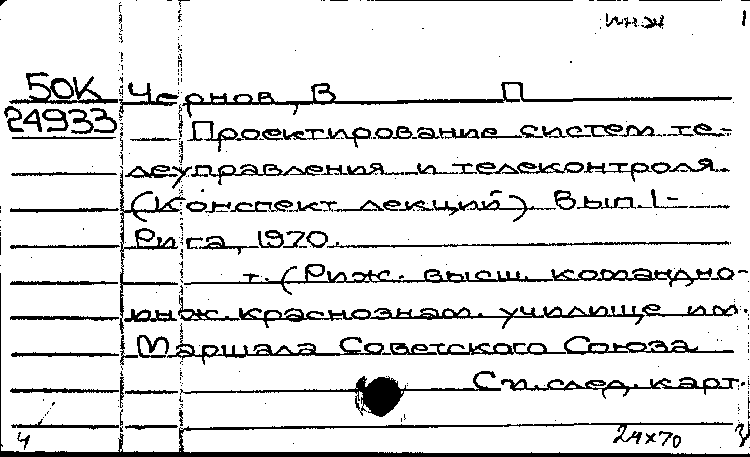 инж 1
50К Чернов, В П
24933 Проектирование систем те-
леуправления и телеконтроля.
(Конспект лекций). Вып. 1-
Рига, 1970.
т. (Риж. высш. командно-
инж. краснознам. училище им.
Маршала Советского Союза
См. след. карт.
4 24х70